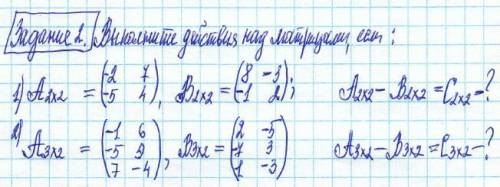 Задание 2. Выполните действия над матрицами, если:
1) A₂ₓ₂ = (-2 7; -5 4), B₂ₓ₂ = (8 -3; -1 2); A₂ₓ₂ - B₂ₓ₂ = C₂ₓ₂ - ?
2) A₃ₓ₂ = (-1 6; -5 9; 7 -4), B₃ₓ₂ = (2 -5; -7 3; 1 -3) A₃ₓ₂ - B₃ₓ₂ = C₃ₓ₂ - ?